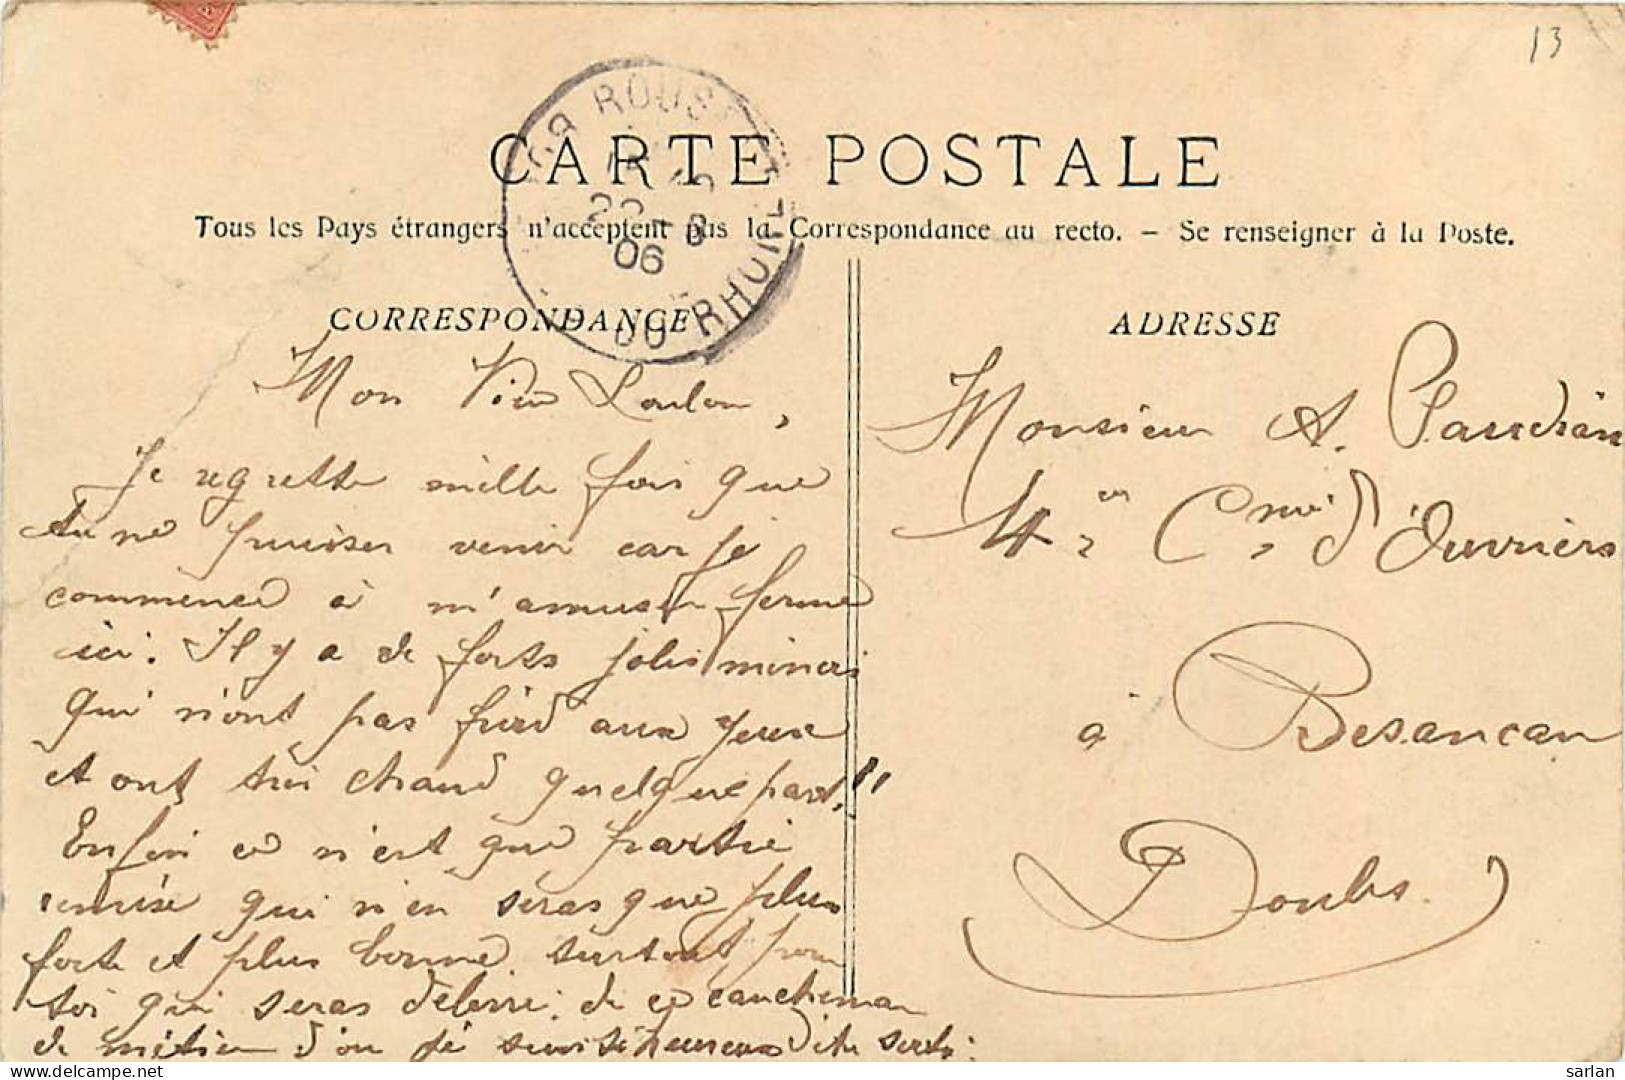 13
CARTE POSTALE
Tous les Pays étrangers n'acceptent pas la Correspondance au recto. — Se renseigner à la Poste.
ROUS
22 - 8
06
DU-RHONE
CORRESPONDANCE
Mon Vieu Loulou,
Je regrette mille fois que
tu ne puisses venir car je
commence à m'amuser ferme
ici. Il y a de forts jolis minois
qui n'ont pas froid aux yeux
et ont très chaud quelque part !!
Enfin ce n'est que partie
remise qui n'en seras que plus
forte et plus bonne surtout pour
toi qui seras délivré de ce cauchemar
de métier d'ou je suis si heureux d'être sorti.
ADRESSE
Monsieur A.
4e Cnie d'Ouvriers
à Besancon
Doubs
sarlan